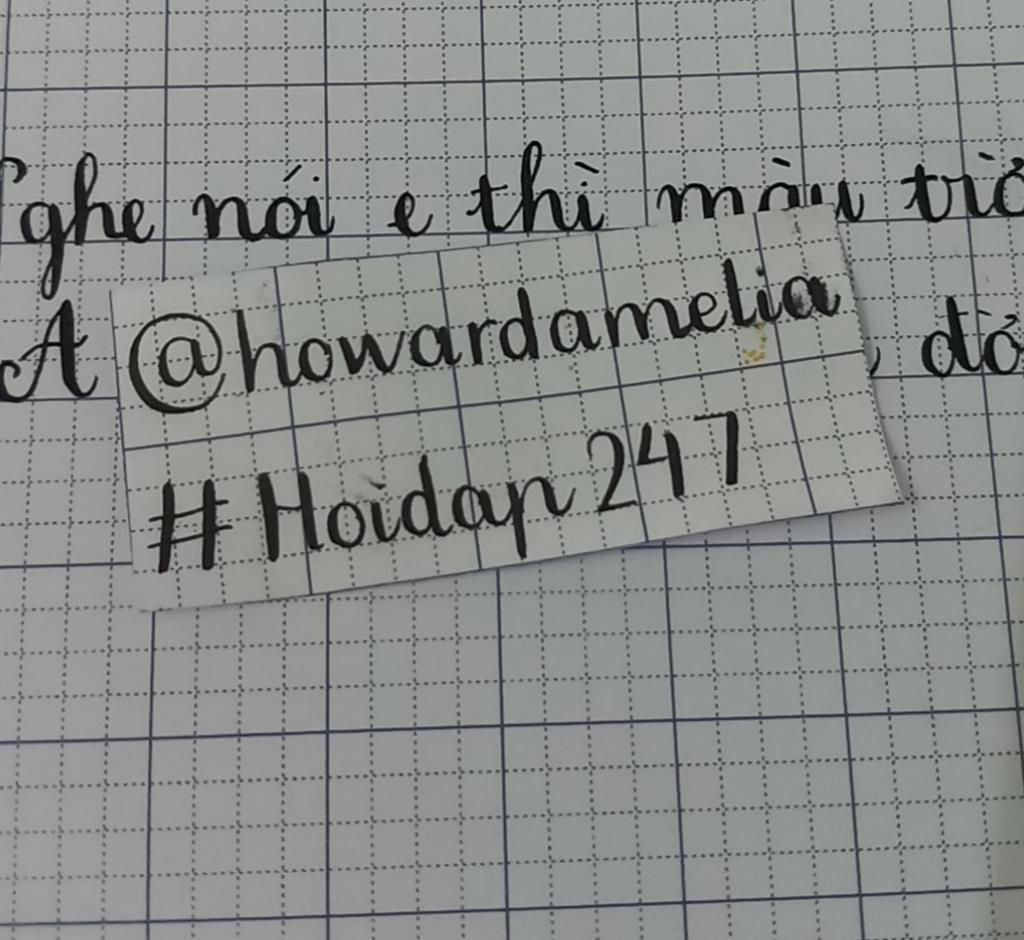 ghe nói e thì màu
A @howardamelia, đó
#Hoidap247